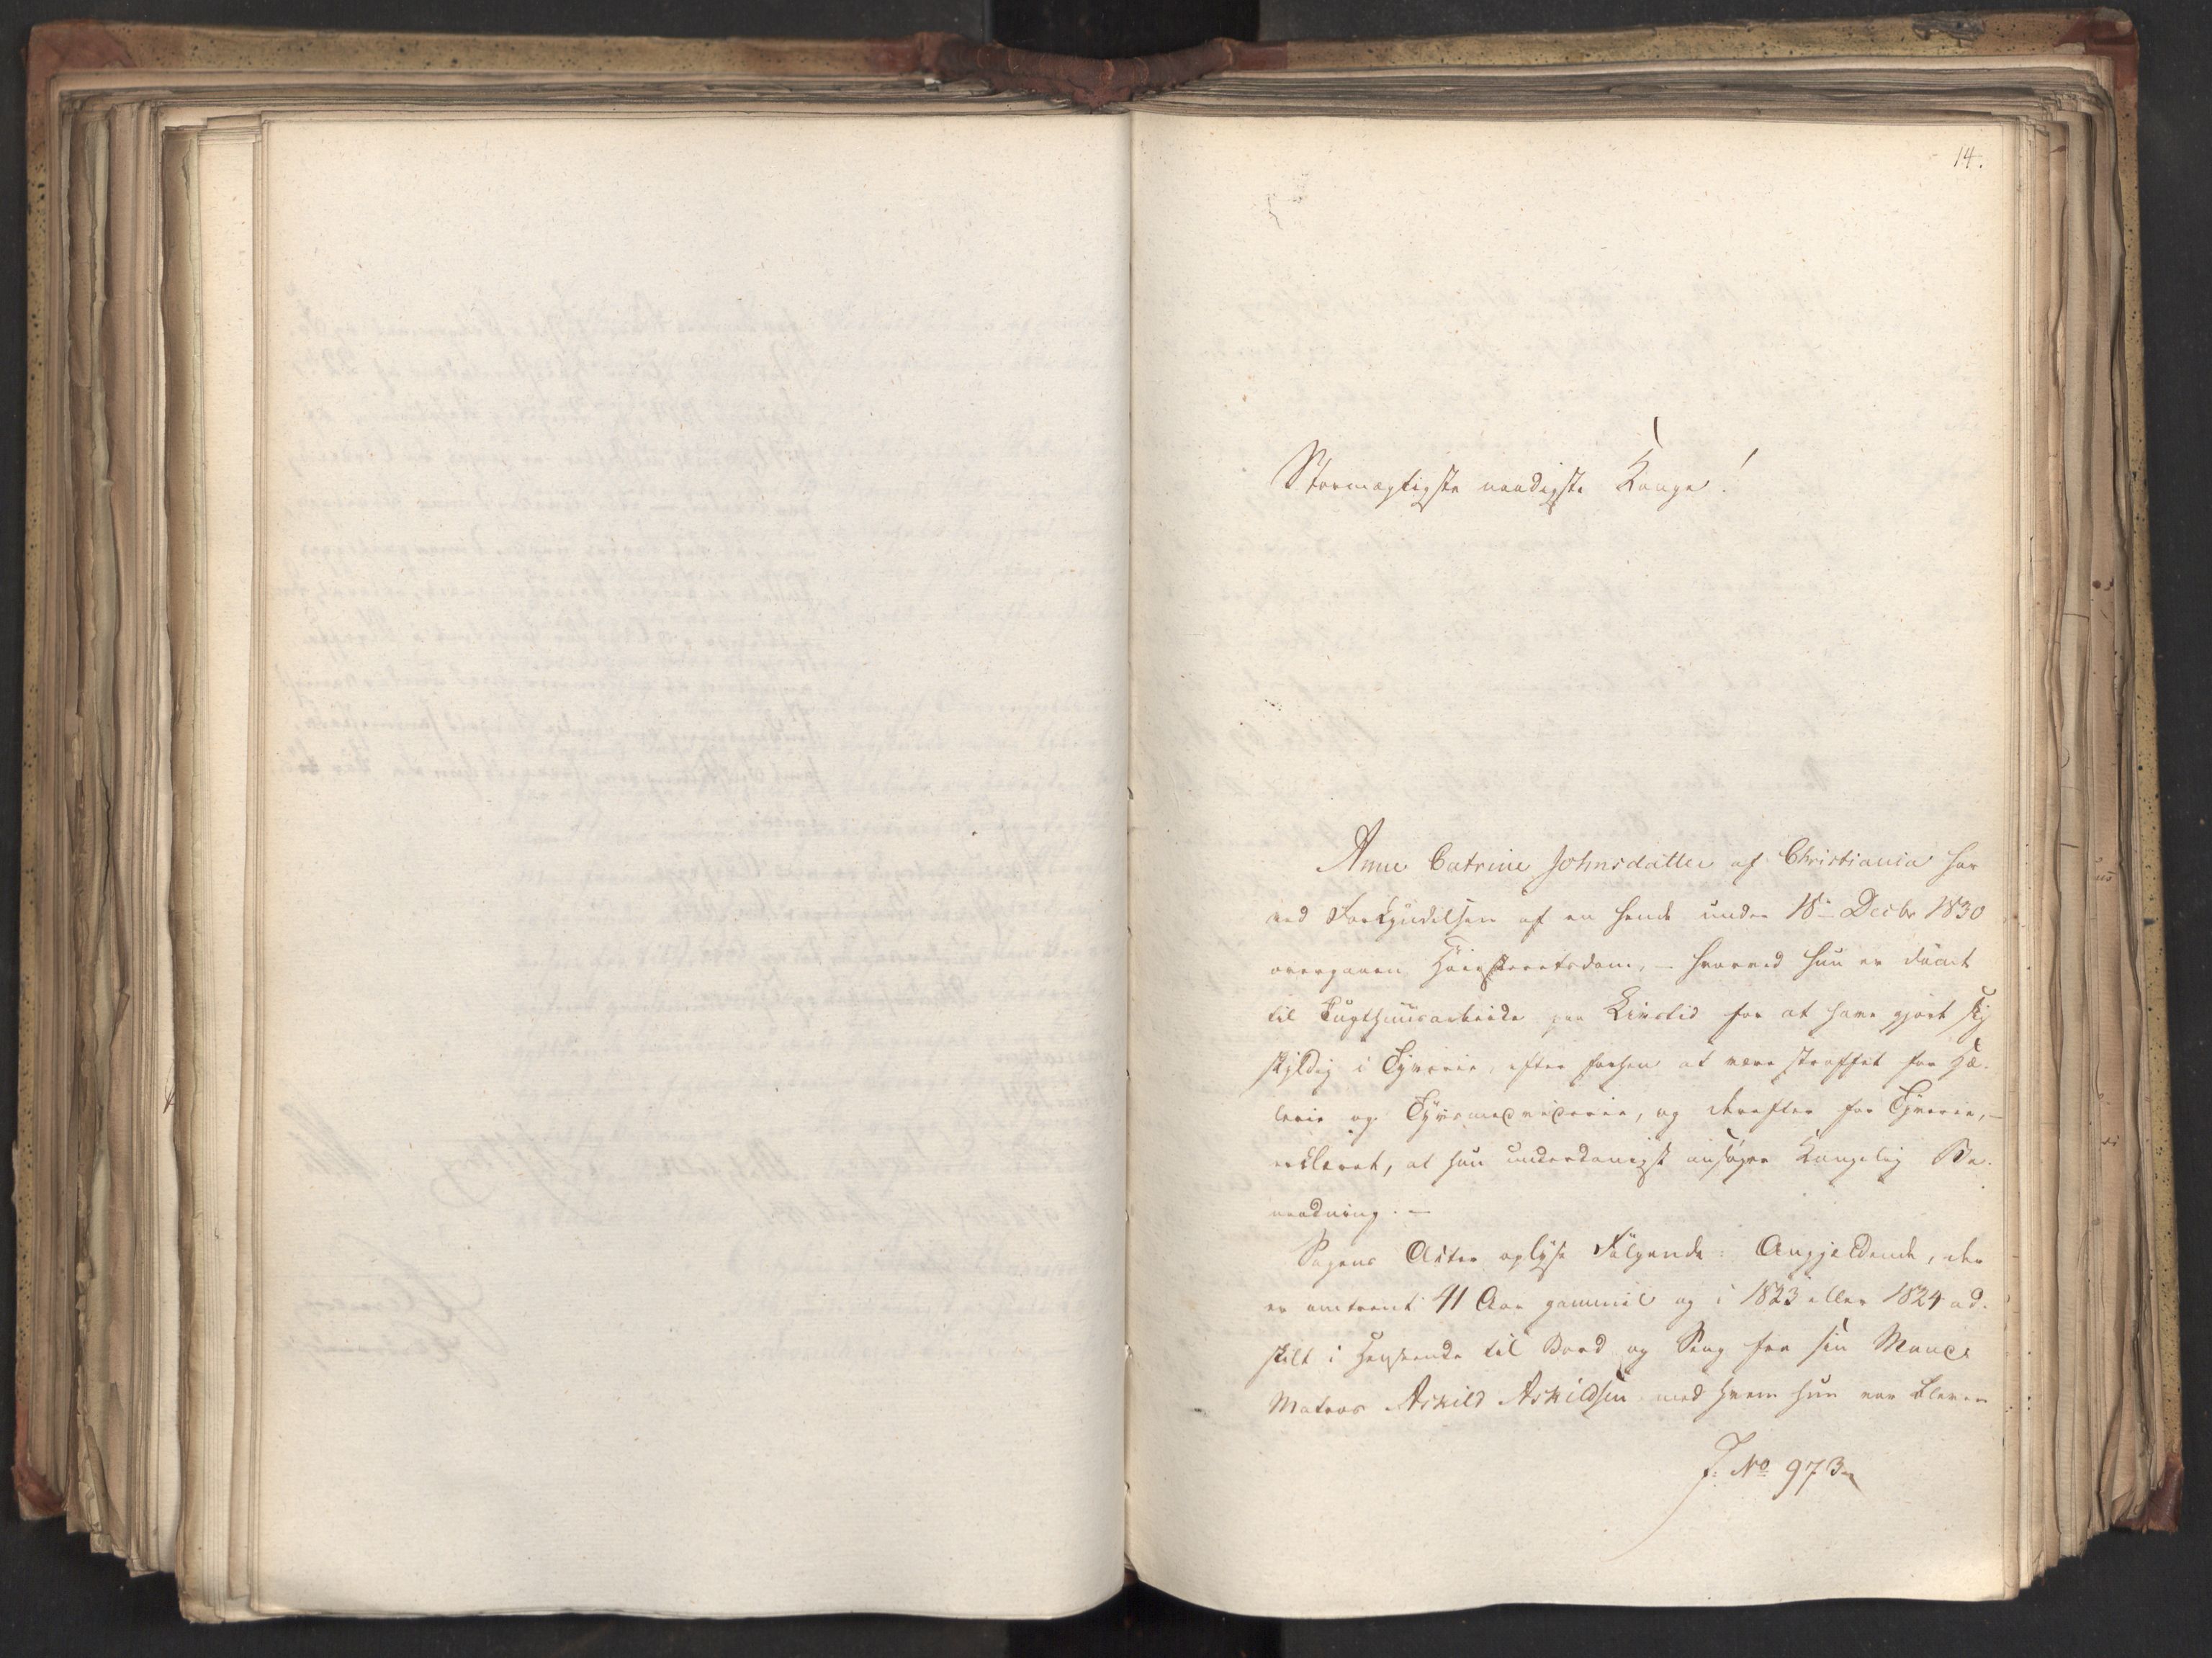 14.
Stormægtigste naadigste Konge!
Anne Catrine Johnsdatter af Christiania har
ved Forkyndelsen af en hende under 18de Decbr 1830
overgaaen Høiesteretsdom, – hvorved hun er dømt
til Tugthuusarbeide paa Livstid for at have gjort sig
skyldig i Tyverie, efter forhen at være straffet for Hæ-
lerie og Tyvsmedviderie, og derefter for Tyverie, –
erklæret, at hun underdanigst ansøger Kongelig Be-
naadning. –
Sagens Akter oplyse Følgende: Angjeldende, der
er omtrent 41 Aar gammel og i 1823 eller 1824 ad-
skilt i Henseende til Bord og Seng fra sin Mand
Matros Askild Askildsen med hvem hun var bleven
J: No 973